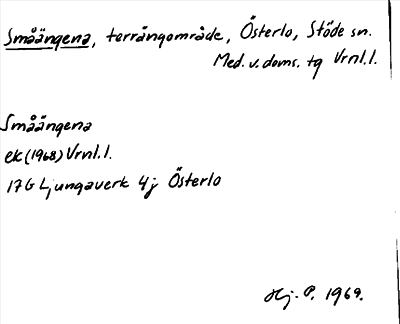 Småängena, terrängområde, Österlo, Stöde sn.
Med. v. doms. tg Vrnl. l.
Småängena
ek (1968) Vrnl. l.
17G Ljungaverk 4j Österlo
Hj. P. 1969.